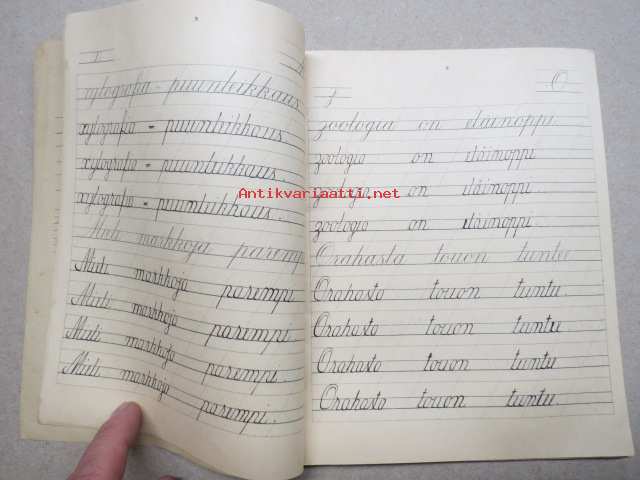 xylografia = puunleikkaus
xylografia = puunleikkaus
xylografia = puunleikkaus.
xylografia = puunleikkaus.
Mieli markkoja parempi
Mieli markkoja parempi
Mieli markkoja parempi.
Mieli markkoja parempi.
Mieli markkoja parempi.
O
zoologia on eläinoppi
zoologia on eläinoppi
zoologia on eläinoppi.
zoologia on eläinoppi.
Orahasta touon tuntee
Orahasta touon tuntee.
Orahasta touon tuntee
Orahasta touon tuntee
Orahasta touon tuntee.
Antikvariaatti.net